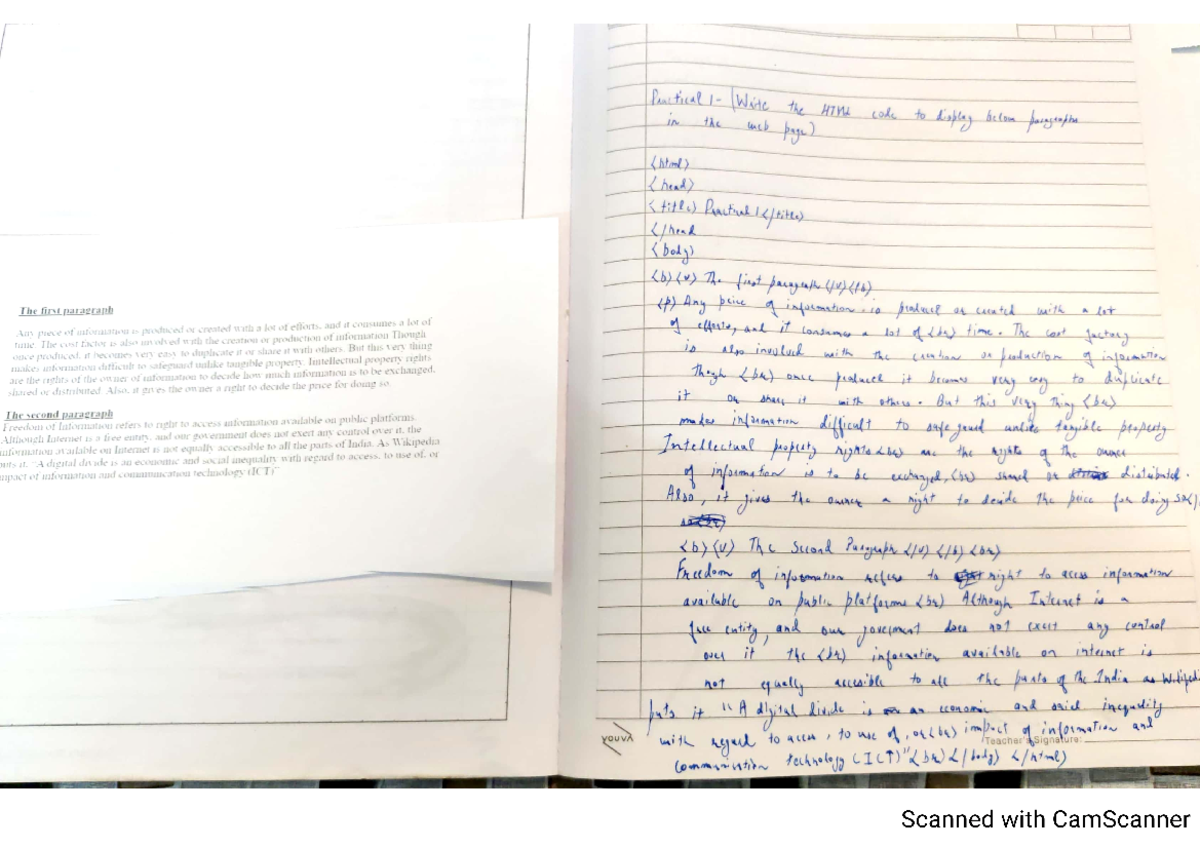 The first paragraph
Any piece of information is produced or created with a lot of efforts, and it consumes a lot of
time. The cost factor is also involved with the creation or production of information Though
once produced, it becomes very easy to duplicate it or share it with others. But this very thing
makes information difficult to safeguard unlike tangible property. Intellectual property rights
are the rights of the owner of information to decide how much information is to be exchanged,
shared or distributed. Also, it gives the owner a right to decide the price for doing so.
The second paragraph
Freedom of Information refers to right to access information available on public platforms.
Although Internet is a free entity, and our government does not exert any control over it, the
information available on Internet is not equally accessible to all the parts of India. As Wikipedia
puts it, "A digital divide is an economic and social inequality with regard to access, to use of, or
mpact of information and communication technology (ICT)"
Practical 1- (Write the HTML code to display below paragraphs
in the web page)
<html>
<head>
<title> Practical 1 </title>
</head
<body>
<b><u> The first paragraph </u></b>
<p> Any peice of information is produced or created with a lot
of efforts, and it consumes a lot of <br> time. The cost factory
is also involved with the creation or production of information
Though <br> once produced it becomes very easy to duplicate
it or share it with others. But this very thing <br>
makes information difficult to safe guard unlike tangible property
Intellectual property rights <br> are the rights of the owner
of information is to be exchanged, <br> shared or distributed.
Also, it gives the owner a right to decide the price for doing so
<b><u> The Second Paragraph </u></b><br>
Freedom of information refers to right to access information
available on public platforms <br> Although Internet is a
free entity, and our goverment does not exert any control
over it the <br> information available on internet is
not equally accessible to all the parts of the India as Wikipedia
puts it "A digital divide is an economic and social inequality
with regard to access, to use of, or <br> impact of information and
communication technology (ICT)" <br> </body> </html>
YOUVA
Teacher's Signature:
Scanned with CamScanner